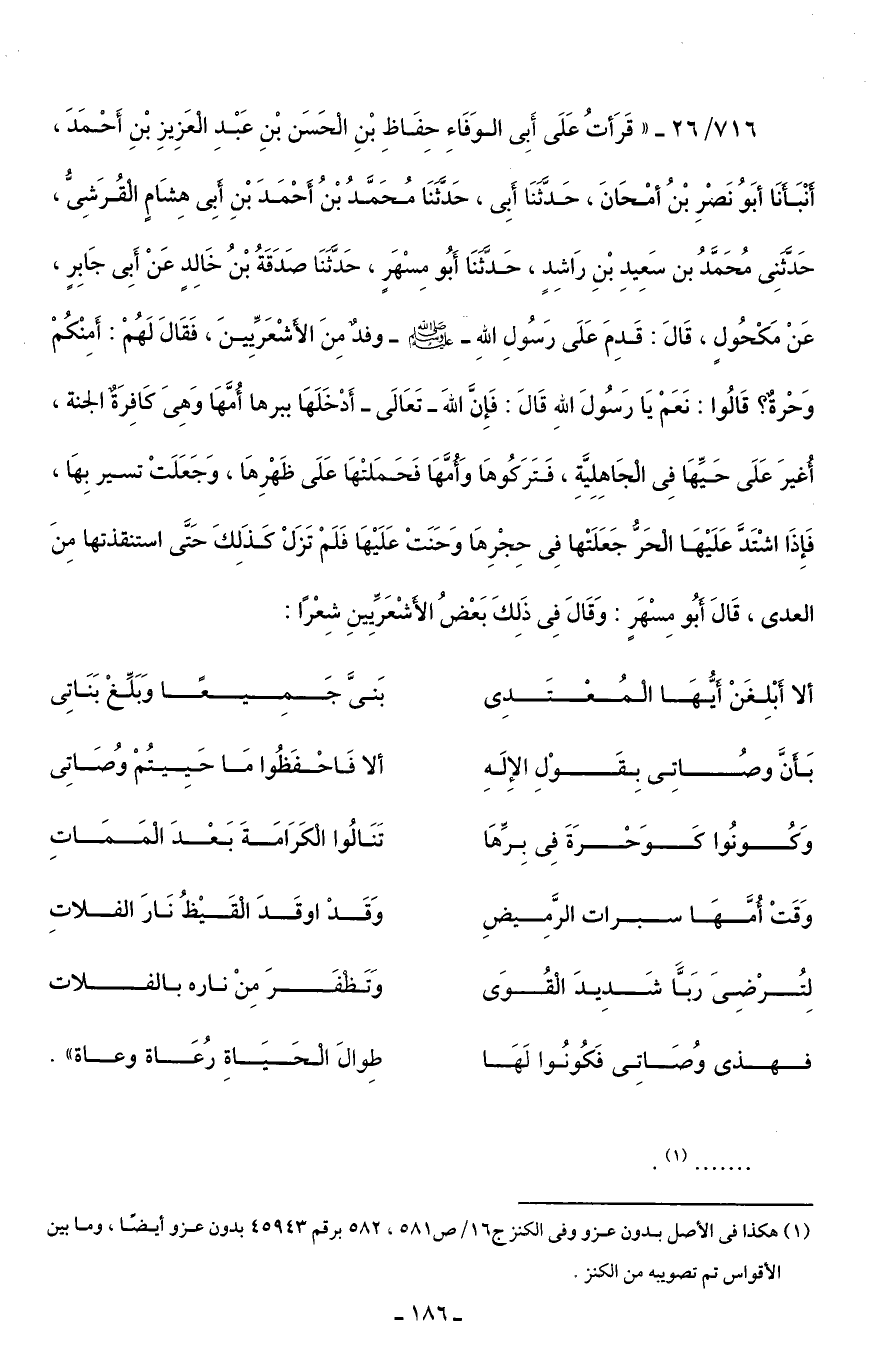 ٢٦/٧١٦ ـ « قَرَأتُ عَلَى أَبِى الـوَفَاءِ حِفَـاظِ بْنِ الْحَسَنِ بْنِ عَبْـدِ الْعَزِيزِ بْنِ أَحْـمَدَ ،
أَنْبَـأَنَا أَبَوُ نَصْرِ بْنُ أمْـحَانَ ، حَـدَّثَنَا أَبِى ، حَدَّثَنَا مُـحَمَّـدُ بْنُ أَحْمَـدَ بْنِ أَبِى هِشَامٍ الْقُـرَشِىُّ ،
حَدَّثَنِى مُحَمَّدُ بن سَعِيدِ بْنِ رَاشِدٍ ، حَـدَّثَنَا أَبُو مِسْهَرٍ ، حَدَّثَنا صَدَقَةُ بْنُ خَالِدٍ عَنْ أَبِى جَابِرٍ ،
عَنْ مَكْحُولٍ ، قَالَ : قَـدِمَ عَلَى رَسُولِ اللهِ ـ ﷺ ـ وفدٌ مِنَ الأَشْعَرِيِّينَ ، فَقَالَ لَهُمْ : أَمِنْكُمْ
وَحْرَةٌ؟ قَالُوا : نَعَمْ يَا رَسُولَ اللهِ قَالَ : فَإِنَّ اللهَ ـ تَعَالَى ـ أَدْخَلَهَا ببرها أُمَّهَا وَهِىَ كَافِرَةٌ الجنة ،
أُغيرَ عَلَى حَيِّهَا فِى الْجَاهِلِيَّةِ ، فَـتَرَكُوهَا وَأُمَّهَا فَحَـمَلَتْهَا عَلَى ظَهْرِهَا ، وَجَعَلَتْ تسـير بِهَا ،
فَإِذَا اشْتَدَّ عَلَيْهَـا الْحَرُّ جَعَلَتْها فِى حِجْرِهَا وَحَنَتْ عَلَيْهَا فَلَمْ تَزَلْ كَـذَلِكَ حَتَّى استنقذتها مِنَ
العدى ، قَالَ أَبُو مِسْهَرٍ : وَقَالَ فِى ذَلِكَ بَعْضُ الأَشْعَرِيِّينِ شِعْرًا :
ألا أَبْلِغَنْ أَيُّـهَـا الـمُـعْـتَـدِى بَنِىَّ جَـمِيـعًـا وَبَلِّغْ بَنَاتِى
بَـأنَّ وصُـاتِى بِـقَـوْلِ الإِلَهِ ألا فَـاحْـفَظُوا مَـا حَـيِـيـتُمْ وُصُـاتِى
وَكُـونُوا كَـوَحْـرَةَ فِى بِـرِّهَا تَنَـالُوا الْكَرَامَـةَ بَـعْـدَ الْمَـمَـاتِ
وَقَتْ أُمَّـهَـا سـبرات الرَّمِـيضِ وَقَـدْ اوقَـدَ الْقَـيْـظُ نَـارَ الفـلاتِ
لِتُـرْضِىَ رَبّـًا شَـدِيـدَ الْقُـوَى وَتَـظْفَـرَ مِنْ ناره بـالفـلات
فـهـذِى وُصُـاتِـى فَكُونُـوا لَهَـا طِوالَ الْـحَيَـاةِ رُعَـاة وعـاة» .
....... (١) .
(١) هكذا فى الأصل بـدون عزو وفى الكنز ج١٦/ ص٥٨١ ، ٥٨٢ برقم ٤٥٩٤٣ بدون عـزو أيـضًـا ، ومـا بين
الأقواس تم تصويبه من الكنز .
ـ ١٨٦ ـ